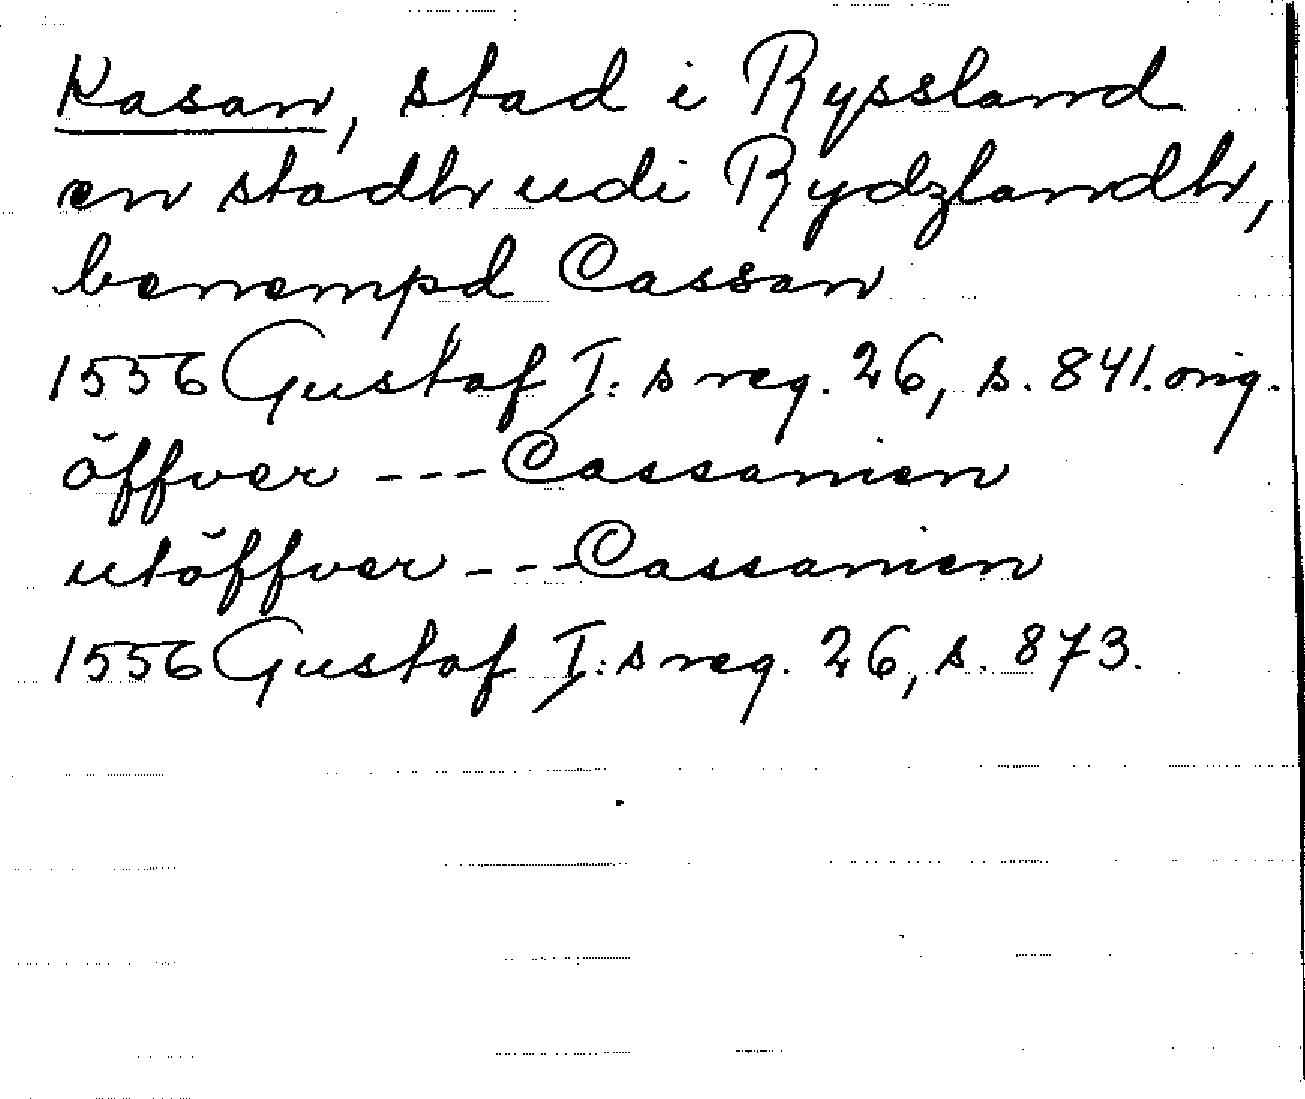 Kasan, stad i Ryssland
en stadh udi Rydzlandh,
benempd Cassan
1556 Gustaf I:s reg. 26, s. 841. orig.
öffver --- Cassanien
utöffver --- Cassanien
1556 Gustaf I:s reg. 26, s. 873.